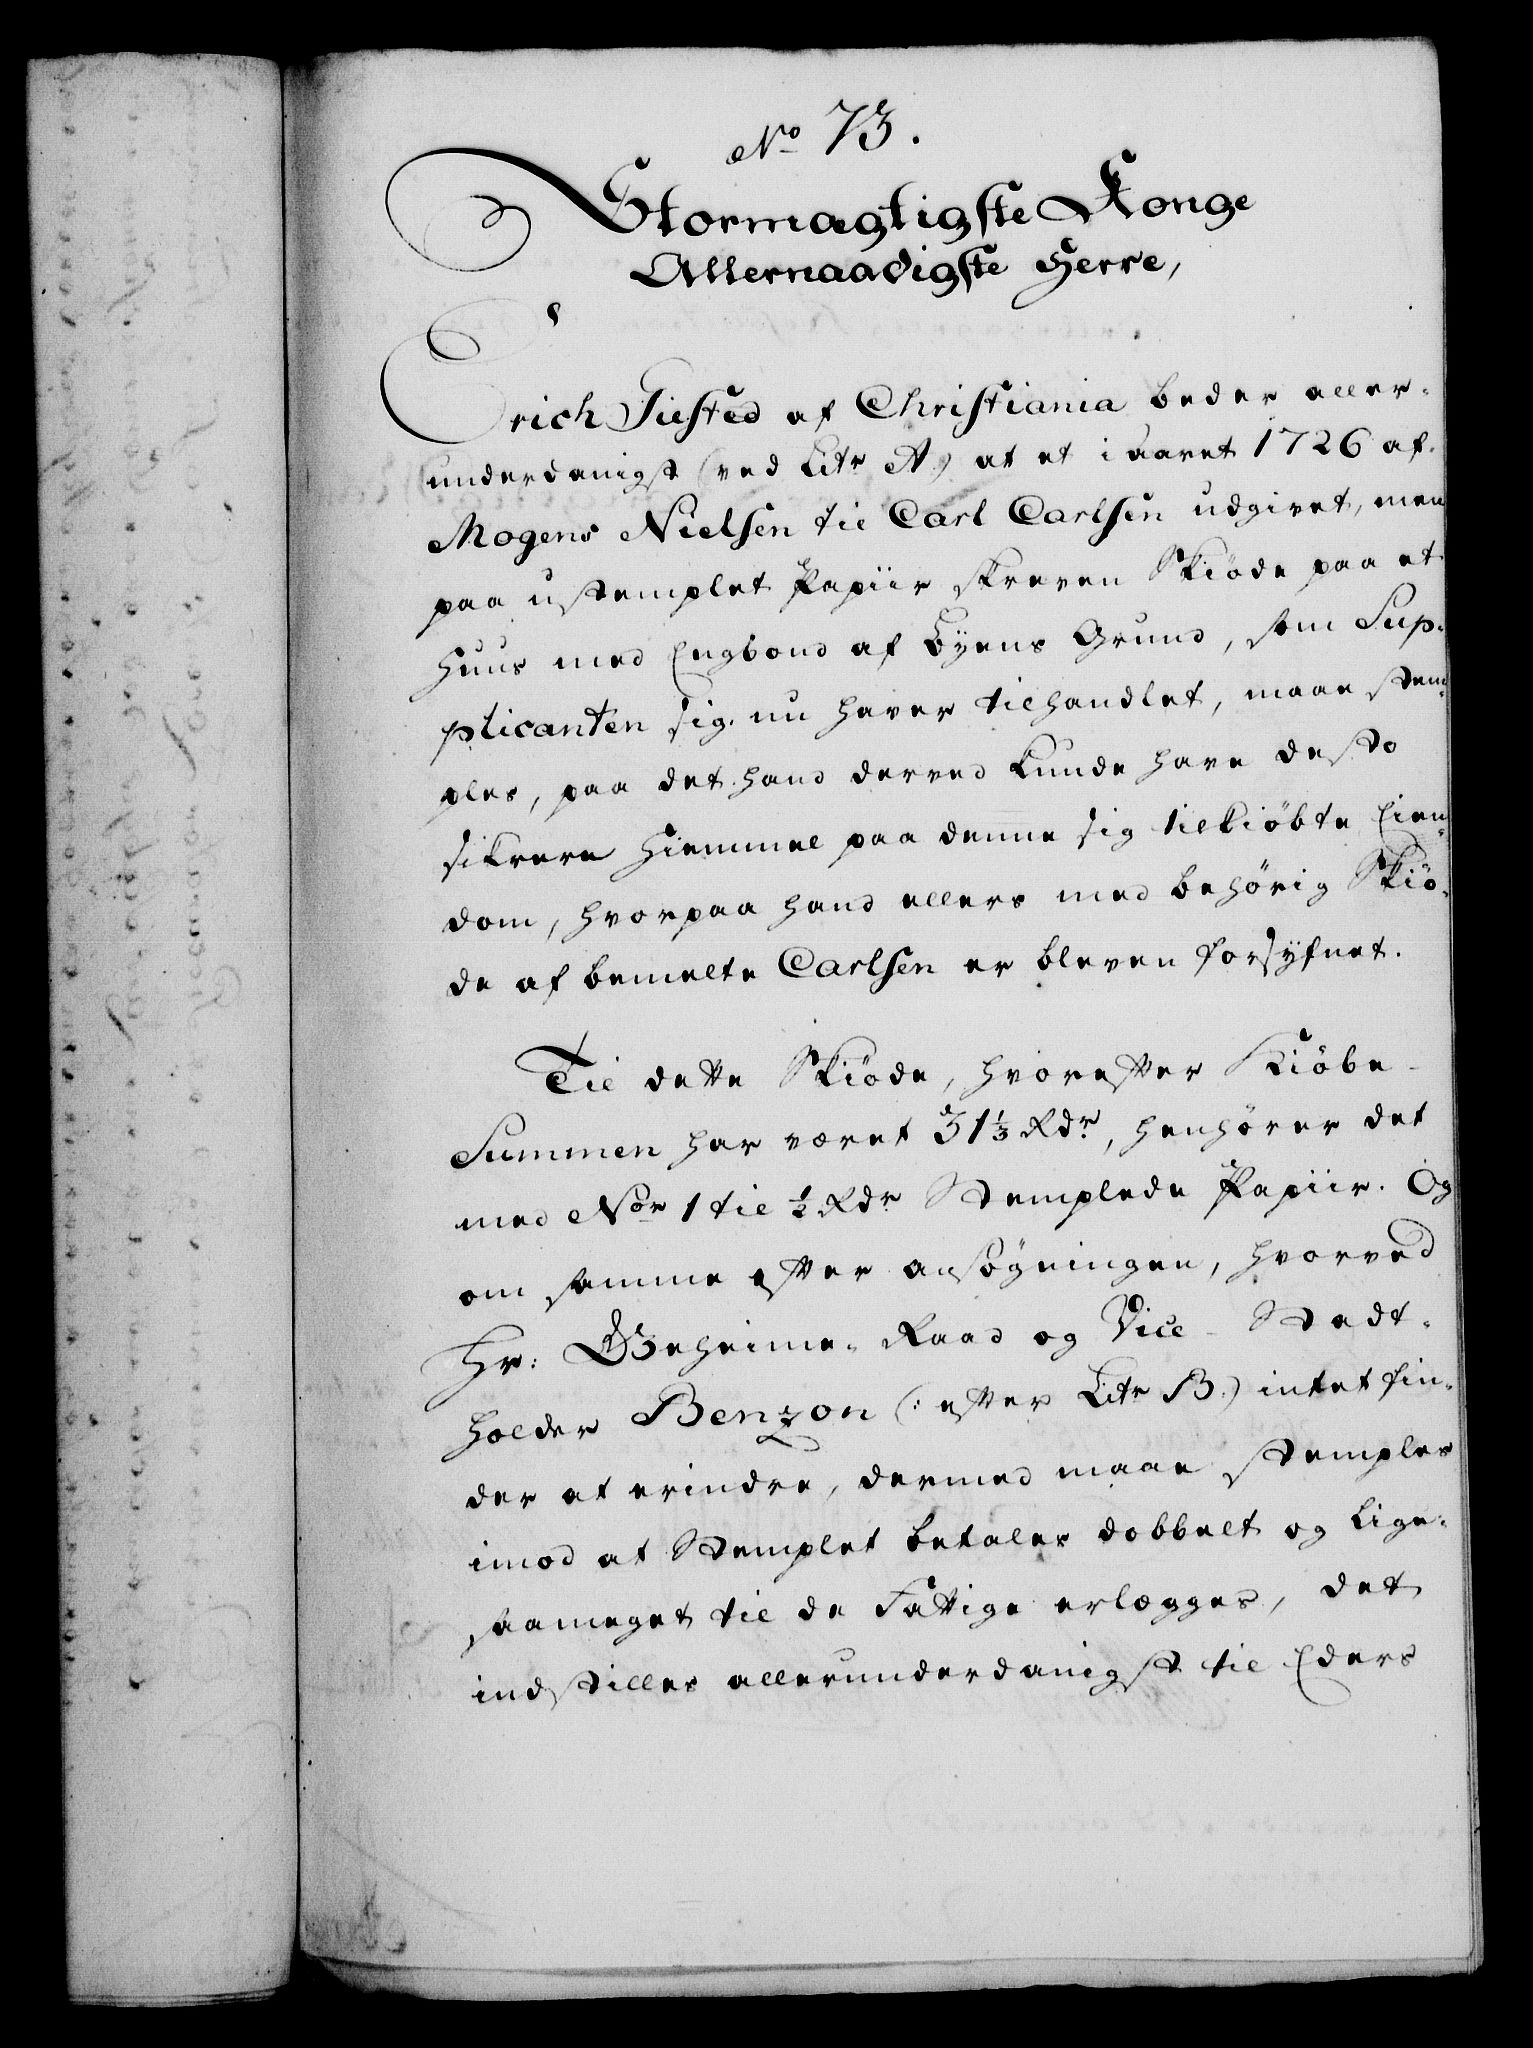 No 73.
Stormægtigste Konge
Allernaadigste Herre,
Erich Tiested af Christiania beder aller-
underdanigst (ved Litr A.) at et i Aaret 1726 af
Mogens Nielsen til Carl Carlsen udgivet, men
paa ustemplet Papiir skreven Skiöde paa et
Huus med Engbond af Byens Grund, som Sup-
plicanten sig nu haver tilhandlet, maae stem-
ples, paa det hand derved kunde have desto
sikrere Hiemmel paa denne sig tilkiöbte Eien-
dom, hvorpaa hand ellers med behörig Skiö-
de af bemelte Carlsen er bleven forsÿnet.
Til dette Skiöde, hvorefter Kiöbe-
Summen har været 31 1/3 Rdr, henhører det
med Nor 1 til 1/2 Rdr Stemplede Papiir. Og
om samme efter ansøgningen, hvorved
Hr: Geheime-Raad og Vice-Stadt-
holder Benzon (: efter Litr B.) intet fin-
der at erindre, dermed maae stemples
imod at Stemplet betales dobbelt og lige-
saameget til de Fattige erlægges, det
indstilles allerunderdanigst til Eders